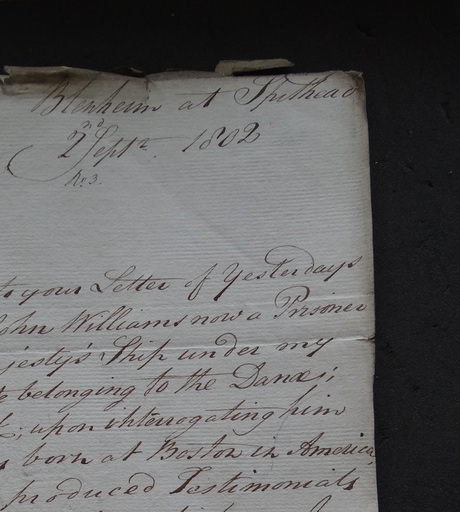 Blenheim at Spithead
2nd Septr. 1802
No. 3.
to your Letter of Yesterdays
John Williams now a Prisoner
jesty's Ship under my
belonging to the Danæ;
; upon interrogating him
born at Boston in America,
produced Testimonials